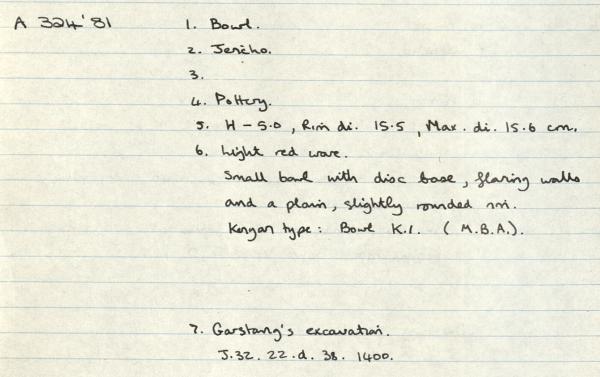 A 324'81
1. Bowl.
2. Jericho.
3.
4. Pottery.
5. H - 5.0, Rim di. 15.5, Max. di. 15.6 cm.
6. Light red ware.
Small bowl with disc base, flaring walls
and a plain, slightly rounded rim.
Kenyan type: Bowl K.1. (M.B.A.).
7. Garstang's excavation.
J.32. 22.d. 38. 1400.